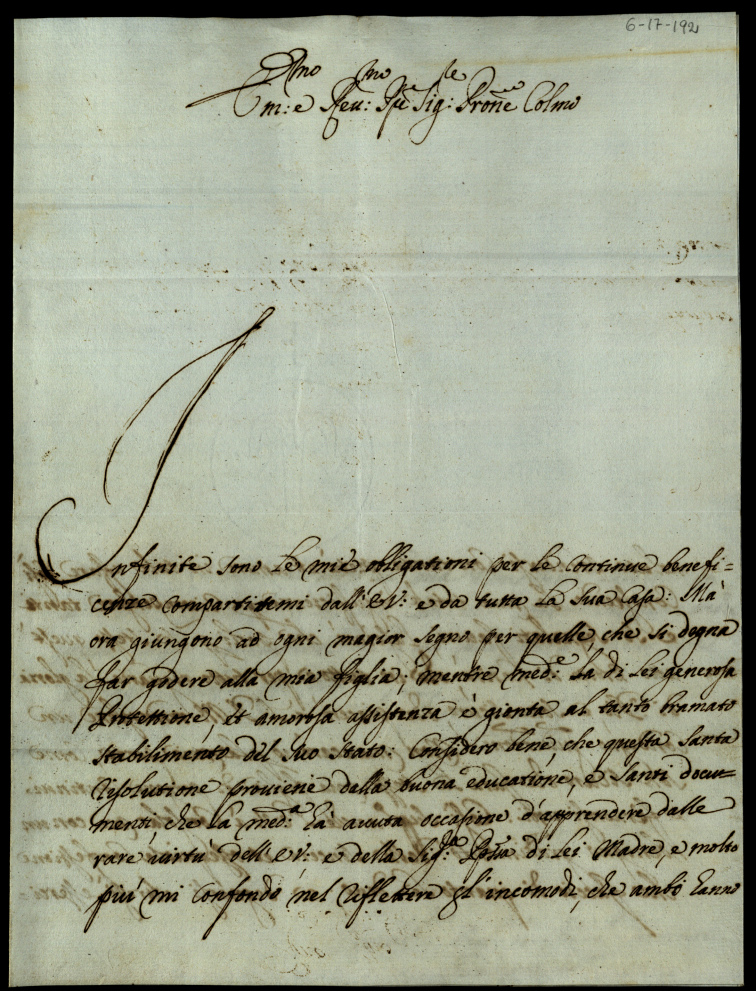 6-17-192
Em:mo e Rev:mo Pre Sig:re Prone Colmo
Infinite sono le mie obligationi per le continue benefi=
cenze compartitemi dall'EV: e da tutta la sua Casa: Mà
ora giungono ad ogni magior segno per quelle, che si degna
far godere alla mia figlia; mentre med:e la di lei generosa
Protettione, et amorosa assistenza è gionta al tanto bramato
stabilimento del suo stato: Considero bene, che questa santa
risolutione proviene dalla buona educatione, e santi docu=
menti, che la med:a hà avuta occasione d'apprendere dalle
rare virtù dell'EV: e della Sig:ra Pnpssa di lei Madre, e molto
più mi confondo nel riflettere gl'incomodi, che ambi hanno